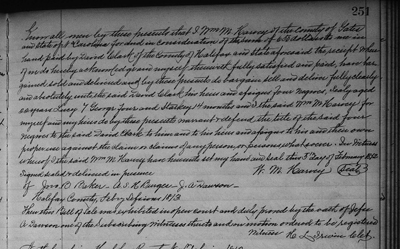 251
Know all men by these presents that I Wm M. Harvey of the County of Gates
and State of N Carolina for and in consideration of the sum of Dollars to me in
hand paid by David Clark of the County of Halifax and State aforesaid the receipt where
of I do hereby acknowledge and myself therewith fully satisfied and paid, have bar
gained sold and delivered and by these presents do bargain sell and deliver fully clearly
and absolutely unto the said David Clark his heirs and assigns four Negroes, aged
as Lucy 7 George four and 14 months and I the said Wm M Harvey for
myself and my heirs do by these presents warrant & defend the title of the said four
negroes to the said David Clark to him and to his heirs and assigns to his and their own
proper use against the claim or claims of any person, or persons whatsoever. In Witness
whereof I the said Wm M. Harvey have hereunto set my hand and seal this 3 day of February
Signed sealed & delivered in presence W. M. Harvey (Seal)
of Jno. B. Baker A. J. A. Dawson
Halifax County, Feby Session
Then this Bill of Sale was exhibited in open court and duly proved by the oath of
one of the subscribing Witnesses thereto and on motion ordered to be registered
Witness Clk.